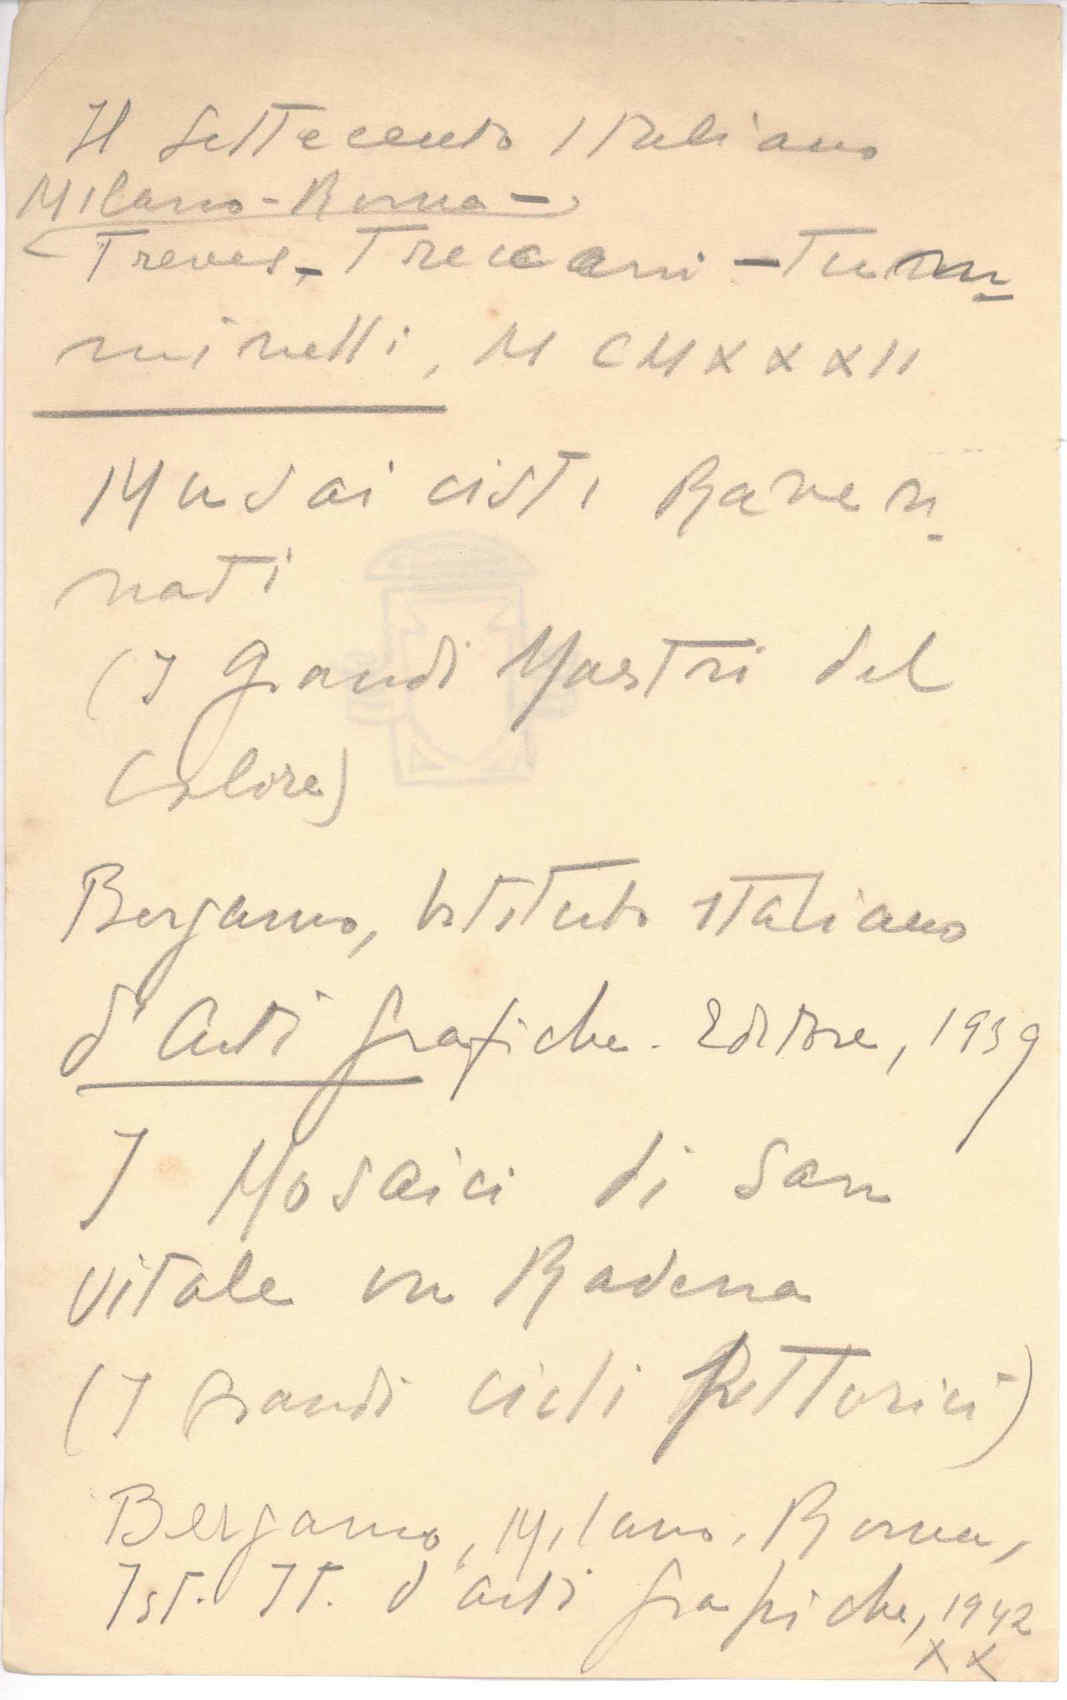 Il Settecento Italiano
Milano-Roma-
Treves-Treccani-Tum-
minelli, MCMXXXII
Musaicisti Raven-
nati
(I Grandi Mastri del
Colore)
Bergamo, Istituto Italiano
d'Arti grafiche. Editore, 1939
I Mosaici di San
Vitale in Ravenna
(I grandi cicli pittorici)
Bergamo, Milano, Roma,
Ist. It. d'arti grafiche, 1942
XX